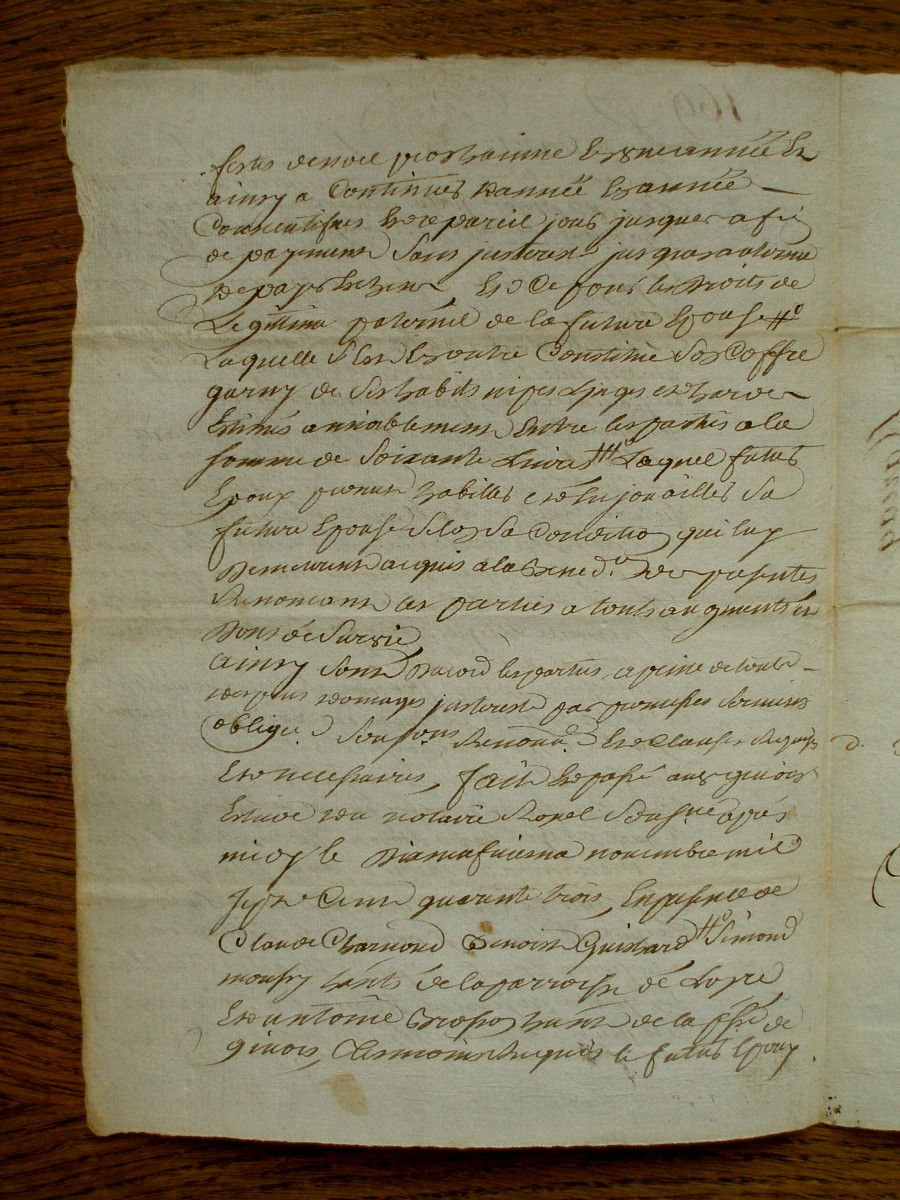 festes de noel prochainne et d'une année en
ainsy a continuer d'année en année
consecutifues et de pareil jour jusques a fin
de payement sans jnterest jusques au terme
de paye et ce pour les droits de
Legitime paternel de la future Epouse
Laquelle s'est En outre Constitué son Coffre
garny de ses habits nipes linges et hardes
Estimés amiablement Entre les parties a la
somme de soixante Livres Lequel futur
Epoux promet habiller et enjouailler sa
future Epouse selon sa condition qui luy
demeureront acquis a la Bened.on des presentes
Renonceant les parties a touts augments et
Dons de survie
ainsy sont d'acord les parties, a peine de touts
despens domages jnterest par promesses serments
obliga.on renon.on et Clauses Requises
et necessaires, fait et passé aux
Estude du notaire Royal soussigné après
midy le novembre mil
sept Cent quarante trois, En presence de
Claude Charnond Benoist Guichard Simond
mousy habts de la parroisse de Loyre
et antoine habt de la pssé de
givors, tesmoins requis le futur Epoux